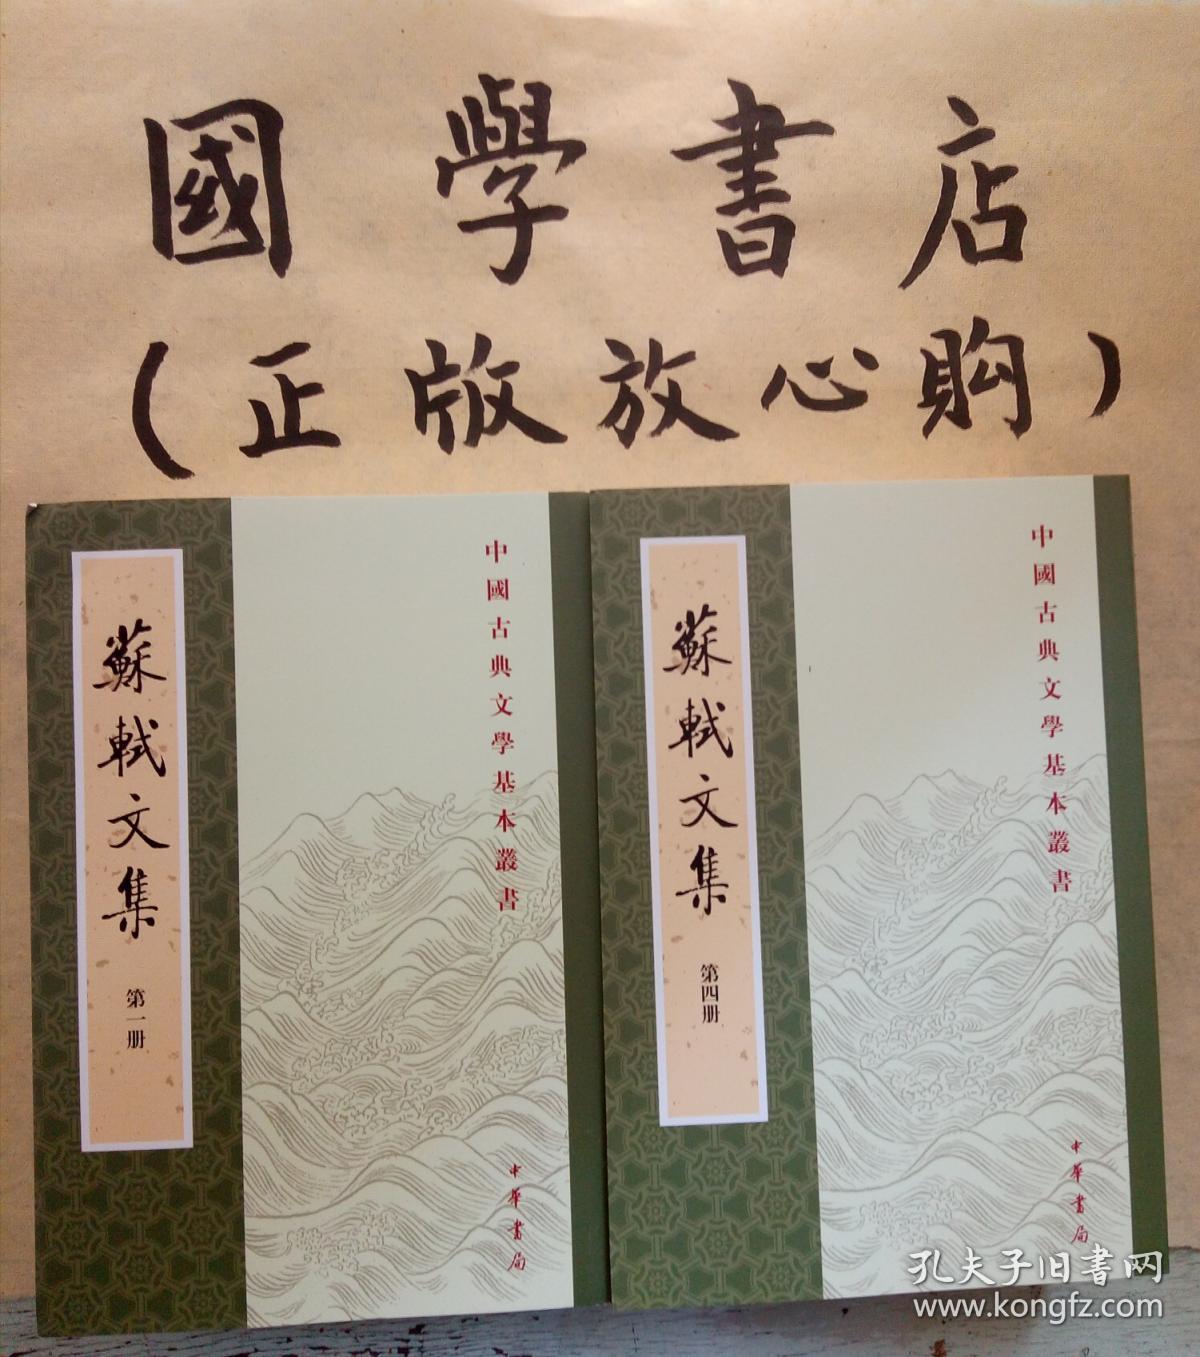 國學書店
(正版放心購)
蘇軾文集
第一册
中國古典文學基本叢書
中華書局
蘇軾文集
第四册
中國古典文學基本叢書
中華書局
孔夫子旧书网
www.kongfz.com